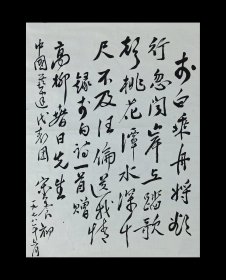 李白乘舟将欲
行忽闻岸上踏歌
声桃花潭水深千
尺不及汪倫送我情
録李白詩一首赠
高柳日先生
中國代表团
一九七八年月